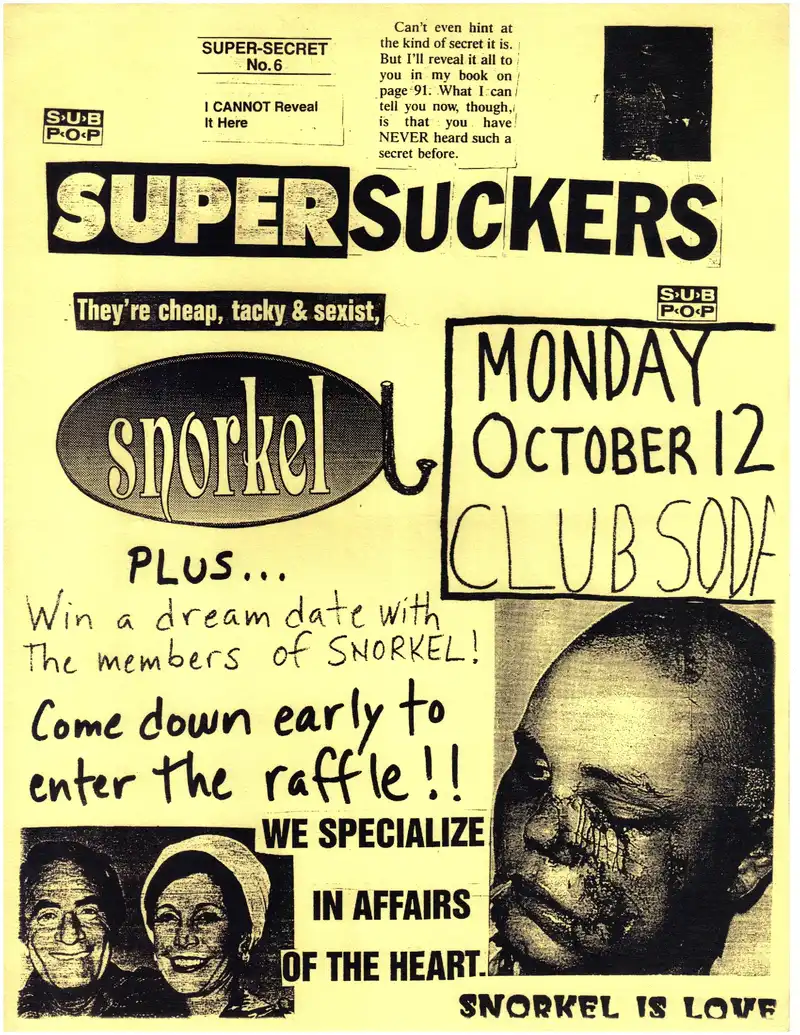 SUPER-SECRET
No. 6
I CANNOT Reveal
It Here
Can't even hint at
the kind of secret it is.
But I'll reveal it all to
you in my book on
page 91. What I can
tell you now, though,
is that you have
NEVER heard such a
secret before.
S·U·B
P·O·P
SUPERSUCKERS
They're cheap, tacky & sexist,
S·U·B
P·O·P
snorkel
MONDAY
OCTOBER 12
CLUB SODA
PLUS...
Win a dream date with
The members of SNORKEL!
Come down early to
enter the raffle!!
WE SPECIALIZE
IN AFFAIRS
OF THE HEART.
SNORKEL IS LOVE